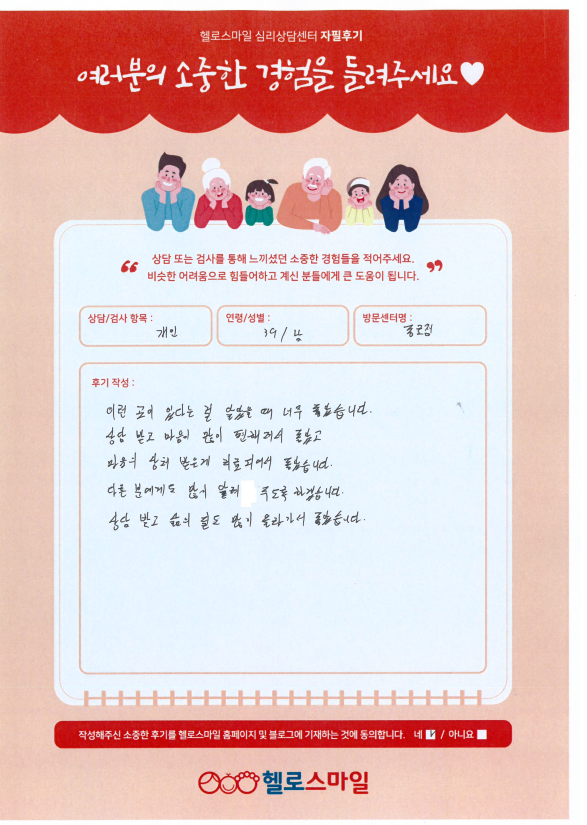 헬로스마일 심리상담센터 자필후기
여러분의 소중한 경험을 들려주세요
“ 상담 또는 검사를 통해 느끼셨던 소중한 경험들을 적어주세요.
비슷한 어려움으로 힘들어하고 계신 분들에게 큰 도움이 됩니다. ”
상담/검사 항목 : 개인
인령/성별 : 39 / 남
방문센터명 : 종로점
후기 작성 :
이런 곳이 있다는 걸 알았을 때 너무 좋았습니다.
상담 받고 마음이 많이 편해져서 좋았고
마음의 상처 받은게 치료되어서 좋았습니다.
다른 분에게도 많이 알려 주도록 하겠습니다.
상담 받고 삶의 질도 많이 올라가서 좋았습니다.
작성해주신 소중한 후기를 헬로스마일 홈페이지 및 블로그에 기재하는 것에 동의합니다. 네 / 아니요
헬로스마일